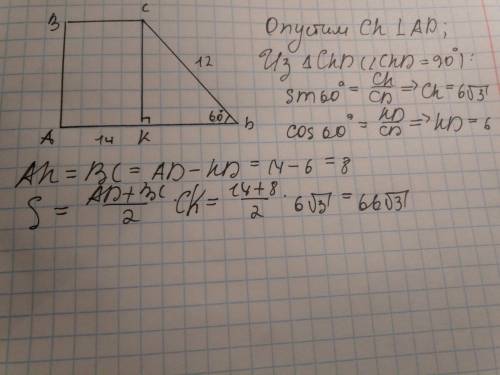 B
C
A
K
D
12
60°
14
Опустим CK ⊥ AD;
Из ΔCKD (∠CKD = 90°):
sin60° = CK/CD => CK = 6√3
cos60° = KD/CD => KD = 6
AK = BC = AD - KD = 14 - 6 = 8
S = (AD + BC)/2 · CK = (14+8)/2 · 6√3 = 66√3